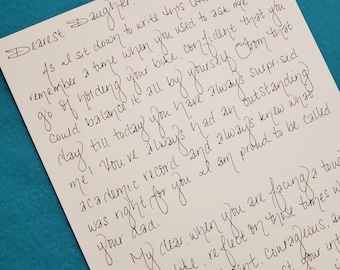 Dearest Daughter,
As I sit down to write this
remember a time when you used to ask me
go of holding your bike, confident that you
could balance it all by yourself. From that
day till today you have always surprised
me. You've always had an outstanding
academic record and always knew what
was right for you. I am proud to be called
your dad.
My dear, when you are facing a
life, reflect on those times
courageous,